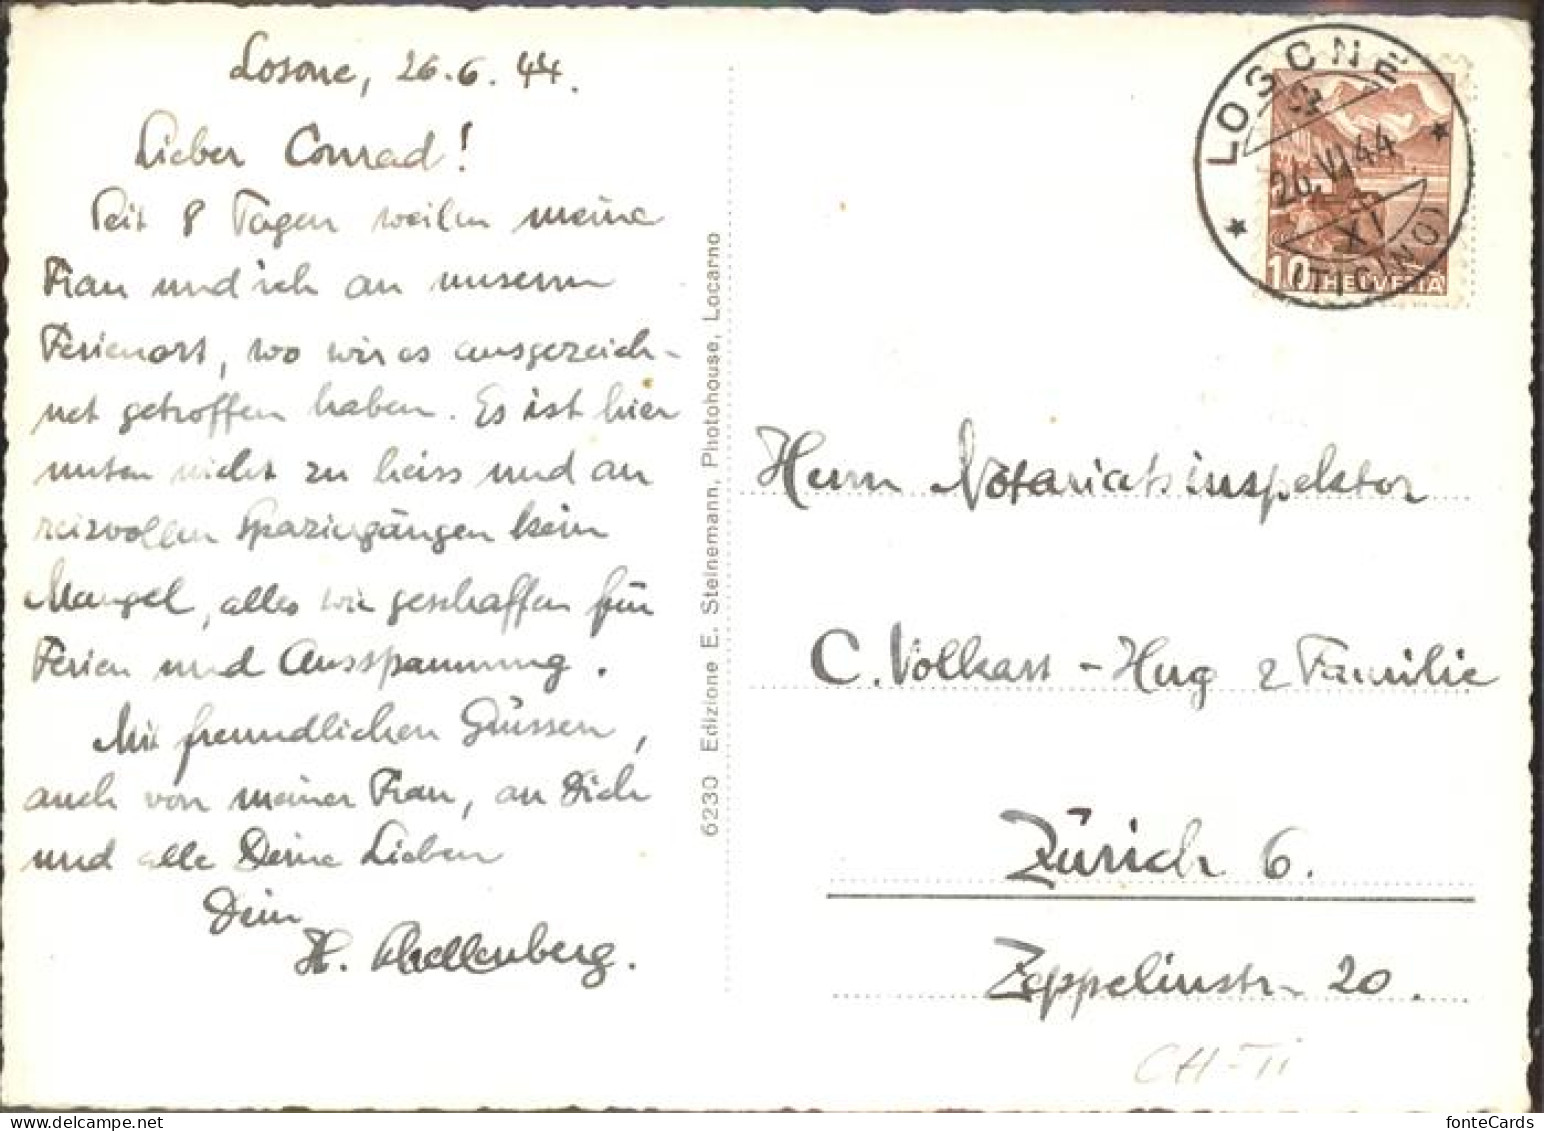 Losone, 26.6.44.
Lieber Conrad!
Seit 8 Tagen weilen meine
Frau und ich an unserem
Ferienort, wo wir es ausgezeich-
net getroffen haben. Es ist hier
unten nicht zu heiss und an
reizvollen Spaziergängen kein
Mangel, alles wie geschaffen für
Ferien und Ausspannung.
Mit freundlichen Grüssen,
auch von meiner Frau, an Dich
und alle Deine Lieben
Dein
H. Schellenberg.
6230 Edizione E. Steinemann, Photohouse, Locarno
LOSONE
26.VI.44
XI
(TICINO)
10 HELVETIA
Herrn Notariatsinspektor
C. Volkart-Hug & Familie
Zürich 6.
Zeppelinstr. 20.
CH-Ti
fonteCards